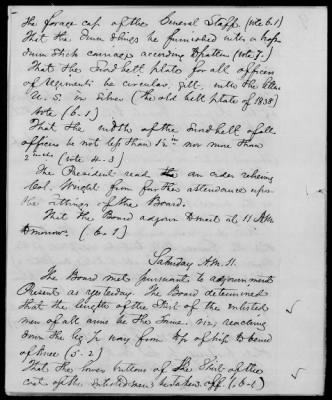 the forage cap of the General Staff. (vote 6.1)
That the Drum Slings be furnished with a
Drum Stick carriage according to pattern (vote 7.)
That the Sword belt plate for all officers
of regiments be circular, gilt, with the letters
U. S. in silver (the old belt plate of 1838)
Vote (6-1)
That the width of the Sword belt of all
officers be not less than 1½ in nor more than
2 inches (vote 4-3)
The President read an order relieving
Col. Wright from further attendance upon
the sittings of the Board.
That the Board adjourn to meet at 11 AM
tomorrow. (6-1)
Saturday A.M. 11.
The Board met pursuant to adjournment
Present as yesterday. The Board determined
That the length of the Skirt of the enlisted
men of all arms be the Same. viz, reaching
down the leg ½ way from top of hip to bend
of knee (5-2)
That the lower buttons of the Skirt of the
coat of the enlisted men be taken off (6-1)